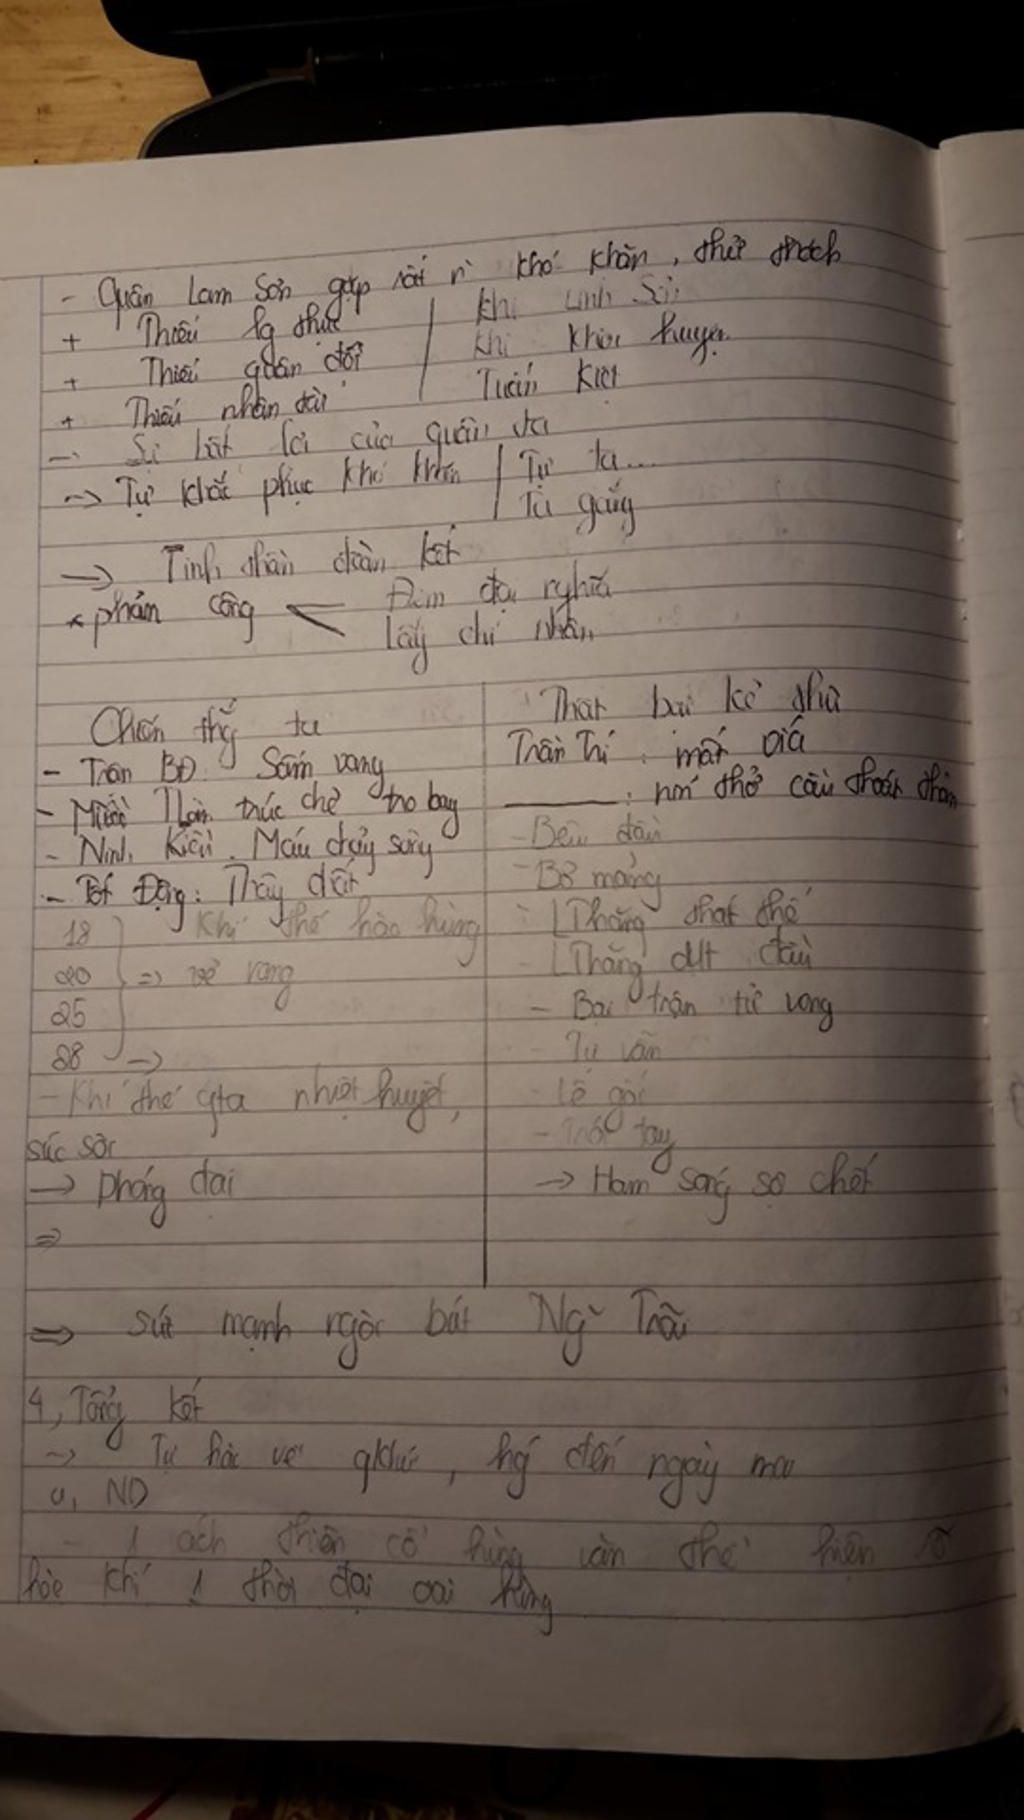 - Quân Lam Sơn gặp rất n` khó khăn, thử thách
+ Thiếu lg thực | Khi Linh Sơn
+ Thiếu quân đội | Khi Khôi huyện
+ Thiếu nhân tài | Tuấn Kiệt
-> Sự bất lợi của quân ta
-> Tự khắc phục khó khăn | Tự ta...
Ta gắng
-> Tinh thần đoàn kết
* phản công < Đem đại nghĩa
lấy chí nhân
Chiến thắng ta
- Trận BĐ Sấm vang
- Miền Trà trúc chẻ tro bay
- Ninh Kiều. Máu chảy sông
- Tốt Động: Thây đất
18
20
25
28 ->
Khí thế hào hùng
=> vẻ vang
- Khí thế qta nhiệt huyết,
sục sôi
-> phóng đại
=>
Thất bại kẻ thù
Trần Trí: mất vía
: nín thở cầu thoát thân
- Bêu đầu
- Bỏ mạng
- Thăng thất thế
- Thăng cụt đầu
- Bại trận tử vong
- Tự vẫn
- Lê gối
- Trói tay
-> Ham sống sợ chết
=> sức mạnh ngòi bút Ng~ Trãi
4, Tổng kết
-> Tự hào về qkhứ, hg' đến ngày mai
a, ND
- 1 thiên cổ hùng văn thể hiện rõ
hào khí 1 thời đại oai hùng